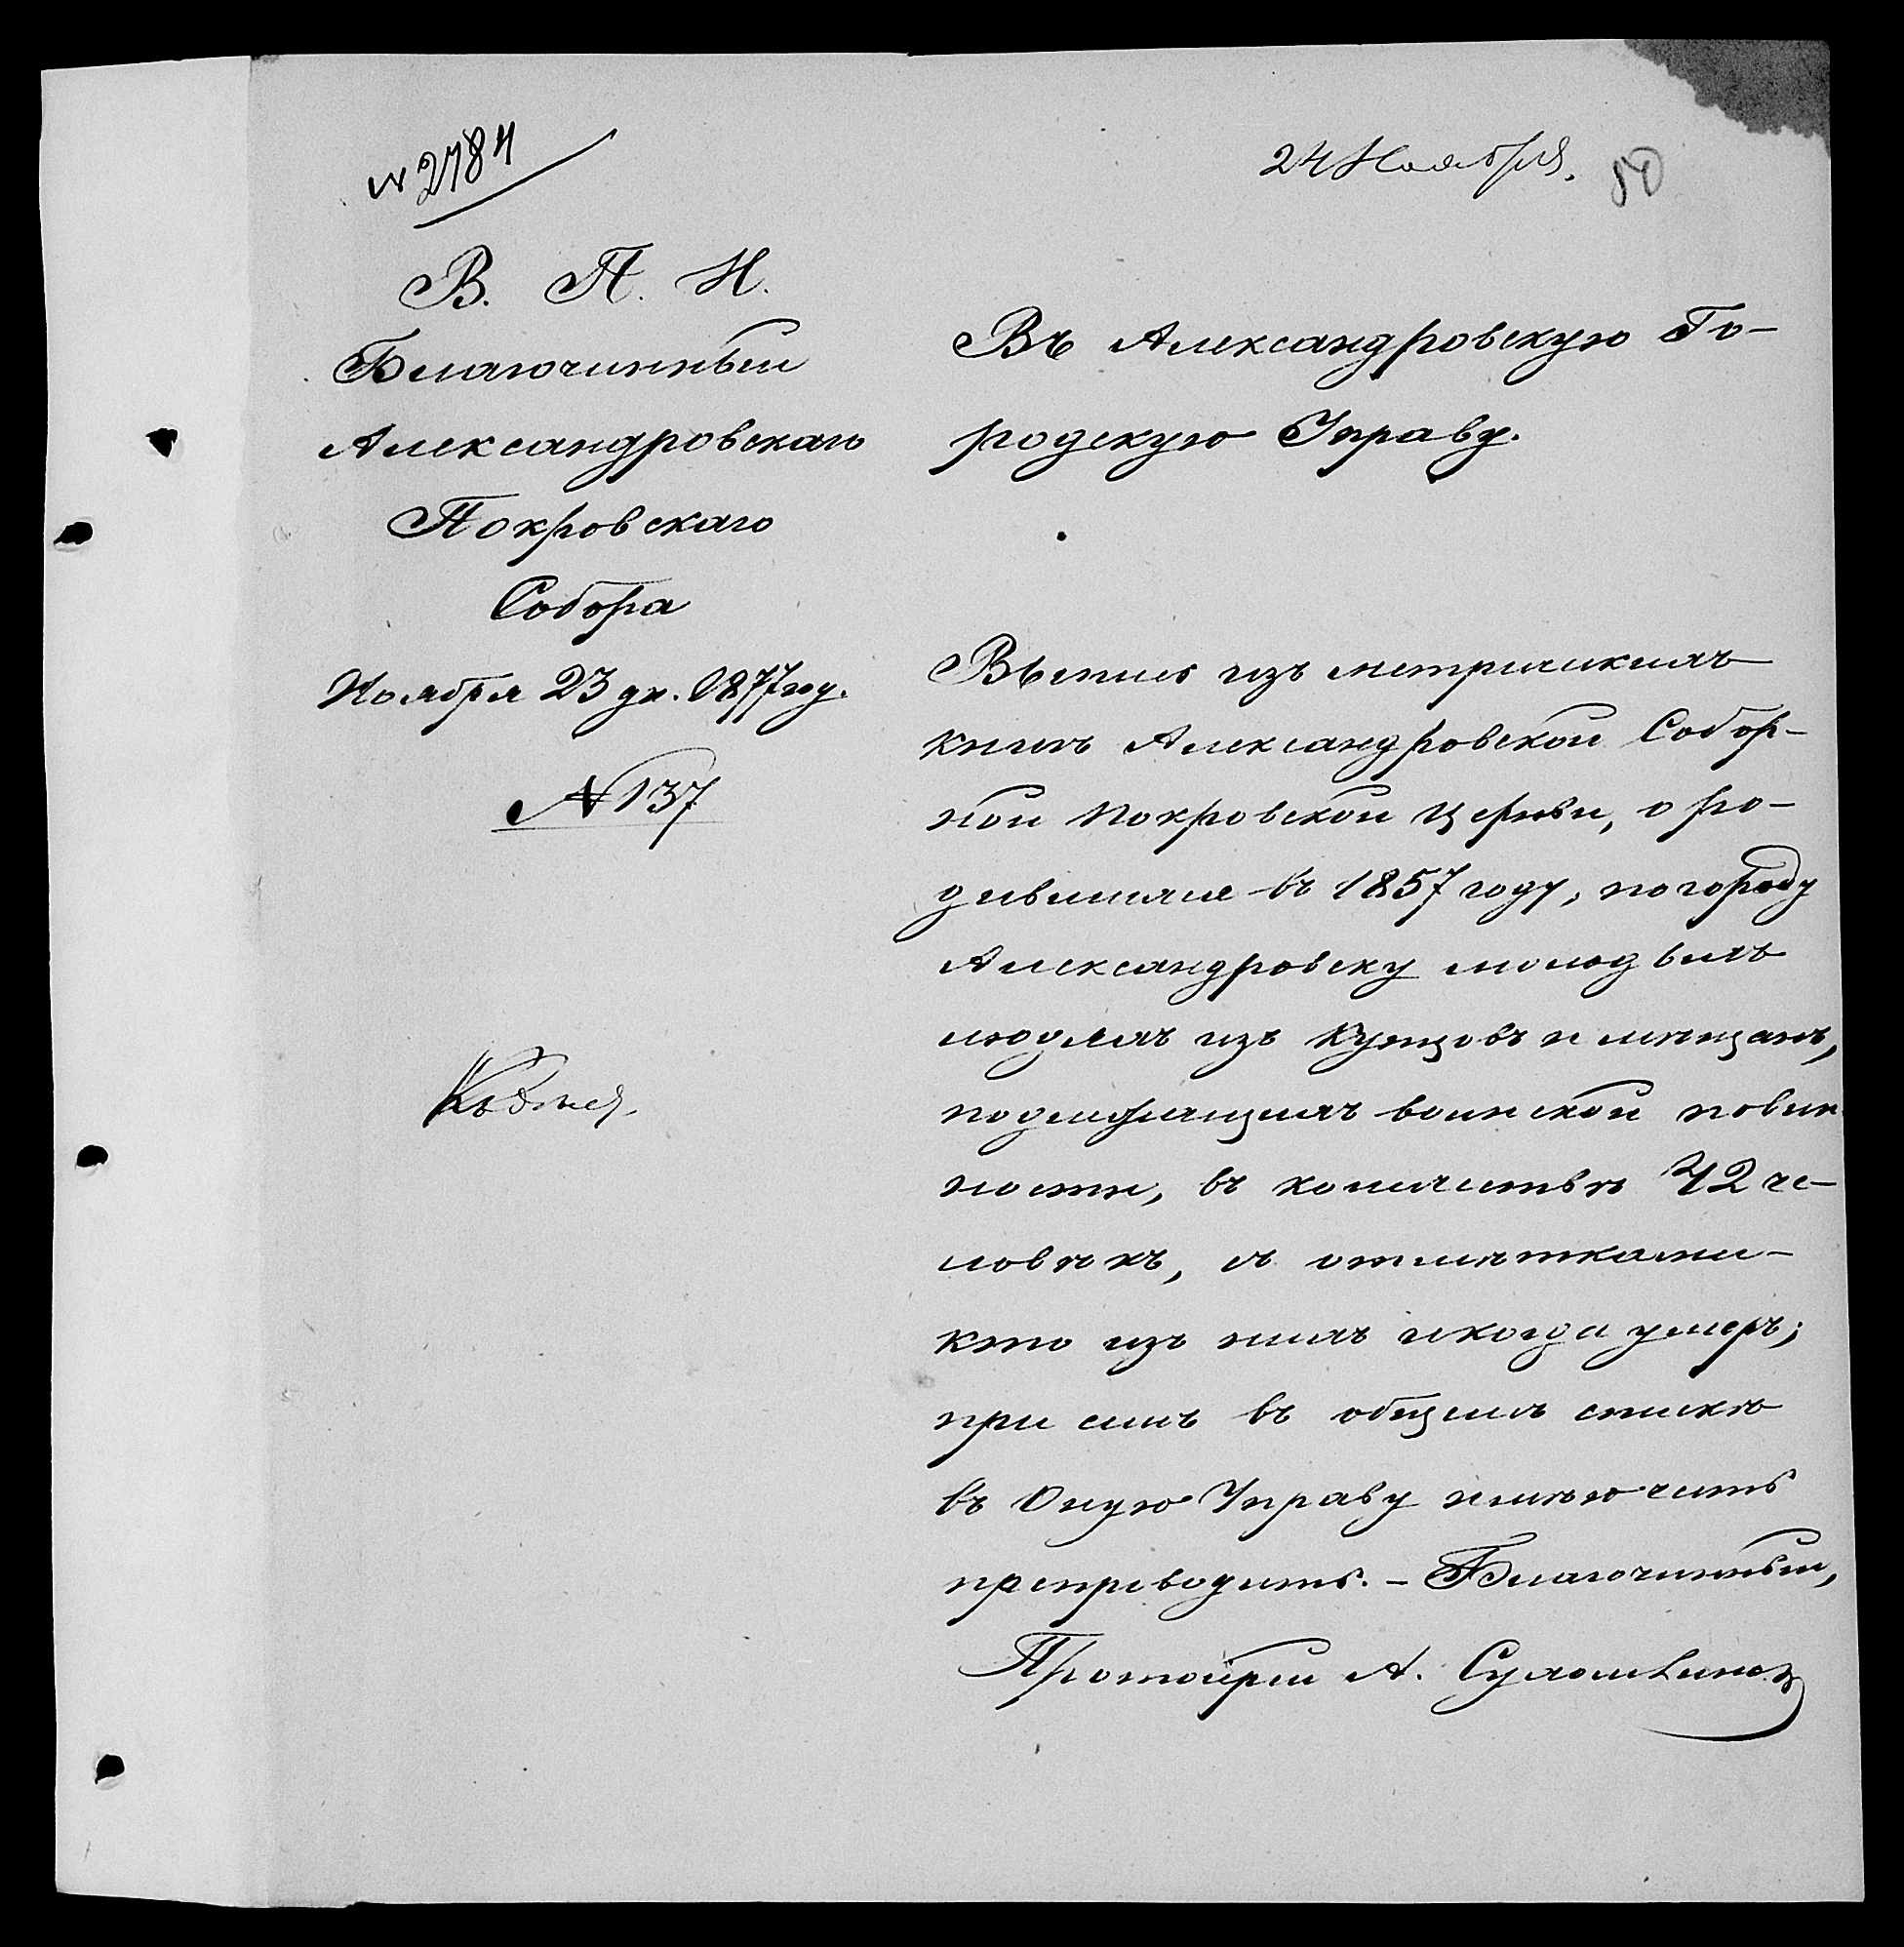 № 2784
24 Ноября.
50
В. П. И.
Благочинный
Александровскаго
Покровскаго
Собора
Ноября 23 дн. 1877 году.
№ 137
Въ Александровскую Го-
родскую Управу.
Выпись изъ метрическихъ
книгъ Александровской Собор-
ной Покровской Церкви, о ро-
дившихся въ 1857 году, по городу
Александровску молодыхъ
людяхъ изъ Купцовъ и мѣщанъ,
подлежащихъ воинской повин
ности, въ количествѣ 42 че-
ловѣкъ, съ отмѣтками-
кто изъ нихъ и когда умеръ;
при семъ въ общемъ спискѣ
въ Оную Управу имѣю честь
препроводить. - Благочинный,
Протоіерей А.
Къ дѣлу.